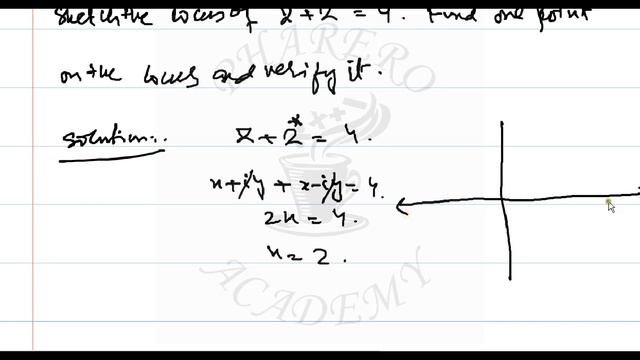 Sketch the locus of z + z = 4. Find one point
on the locus and verify it.
Solution:.
z + z* = 4.
x + iy + x - iy = 4.
2x = 4.
x = 2.
PHARERO
C++
ACADEMY